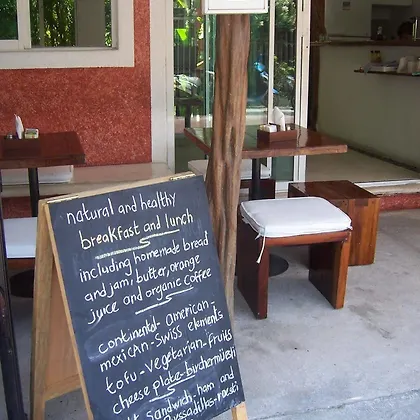 natural and healthy
breakfast and lunch
including homemade bread
and jam, butter, orange
juice and organic coffee
continental - american -
mexican - swiss elements
tofu - vegetarian - fruits
cheese plate - birchermüesli
Sandwich, ham and